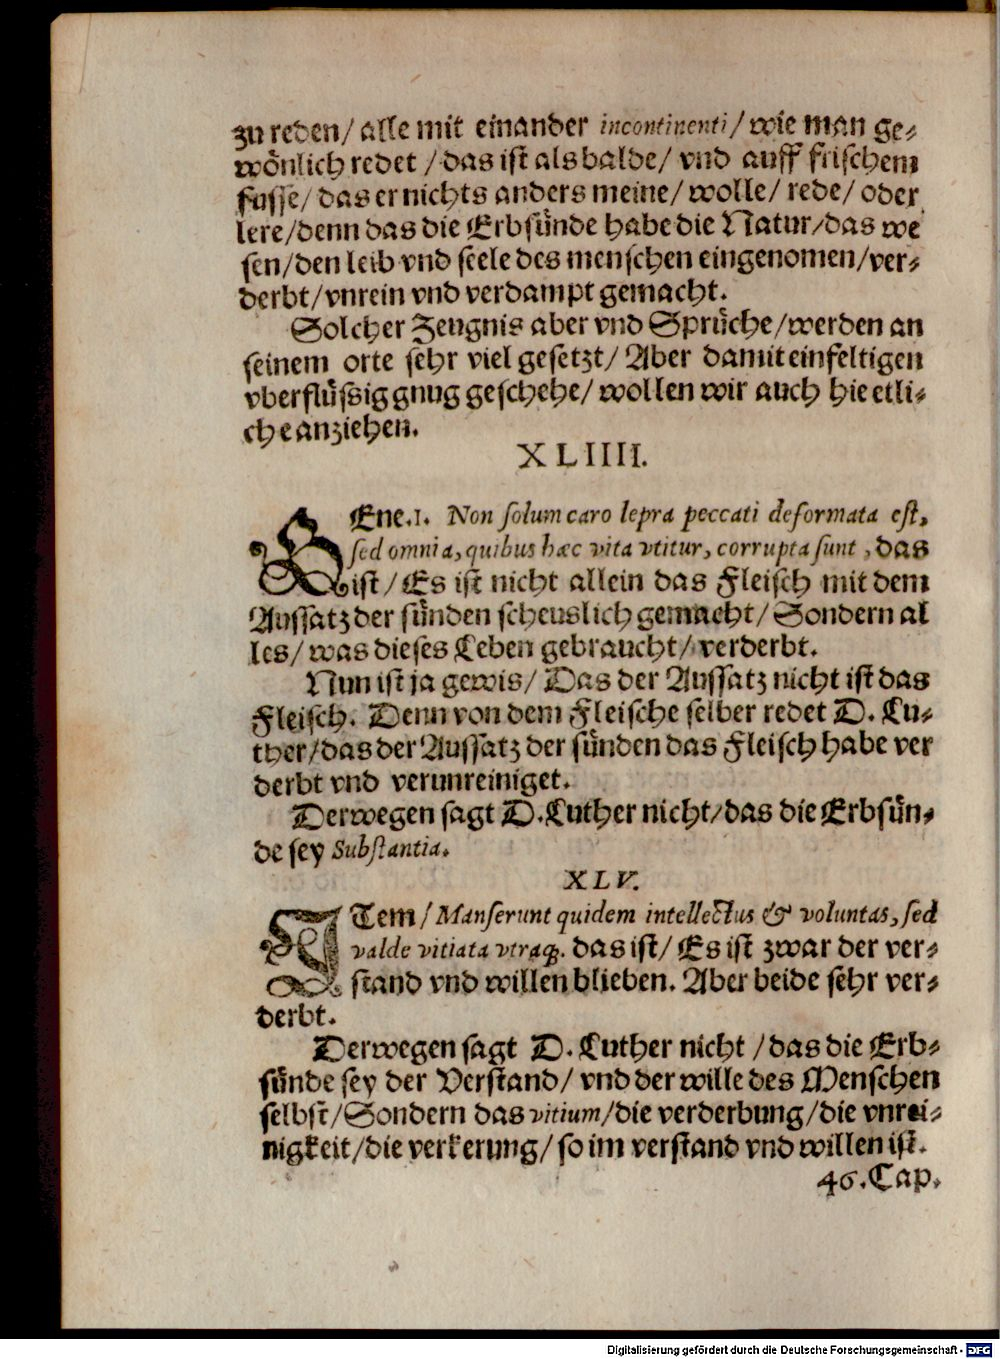 zu reden/ alle mit einander incontinenti/ wie man ge-
wönlich redet / das ist als balde/ vnd auff frischem
fusse/ das er nichts anders meine/ wolle/ rede/ oder
lere/denn das die Erbsünde habe die Natur/das we
sen/den leib vnd seele des menschen eingenomen/ver-
derbt/vnrein vnd verdampt gemacht.
Solcher Zeugnis aber vnd Sprüche/werden an
seinem orte sehr viel gesetzt/ Aber damit einfeltigen
vberflüssig gnug geschehe/ wollen wir auch hie etli-
che anziehen.
XLIIII.
GEne.1. Non solum caro lepra peccati deformata est,
sed omnia, quibus hæc vita vtitur, corrupta sunt, das
ist/ Es ist nicht allein das Fleisch mit dem
Aussatz der sünden scheuslich gemacht/ Sondern al
les/ was dieses Leben gebraucht/ verderbt.
Nun ist ja gewis/ Das der Aussatz nicht ist das
Fleisch. Denn von dem Fleische selber redet D. Lu-
ther/das der Aussatz der sünden das Fleisch habe ver
derbt vnd verunreiniget.
Derwegen sagt D. Luther nicht/das die Erbsün-
de sey Substantia.
XLV.
ITem/ Manserunt quidem intellectus & voluntas, sed
valde vitiata vtraq;. das ist/ Es ist zwar der ver-
stand vnd willen blieben. Aber beide sehr ver-
derbt.
Derwegen sagt D. Luther nicht /das die Erb-
sünde sey der Verstand/ vnd der wille des Menschen
selbst/Sondern das vitium/die verderbung/die vnrei-
nigkeit/die verkerung/ so im verstand vnd willen ist.
46. Cap.
Digitalisierung gefördert durch die Deutsche Forschungsgemeinschaft - DFG